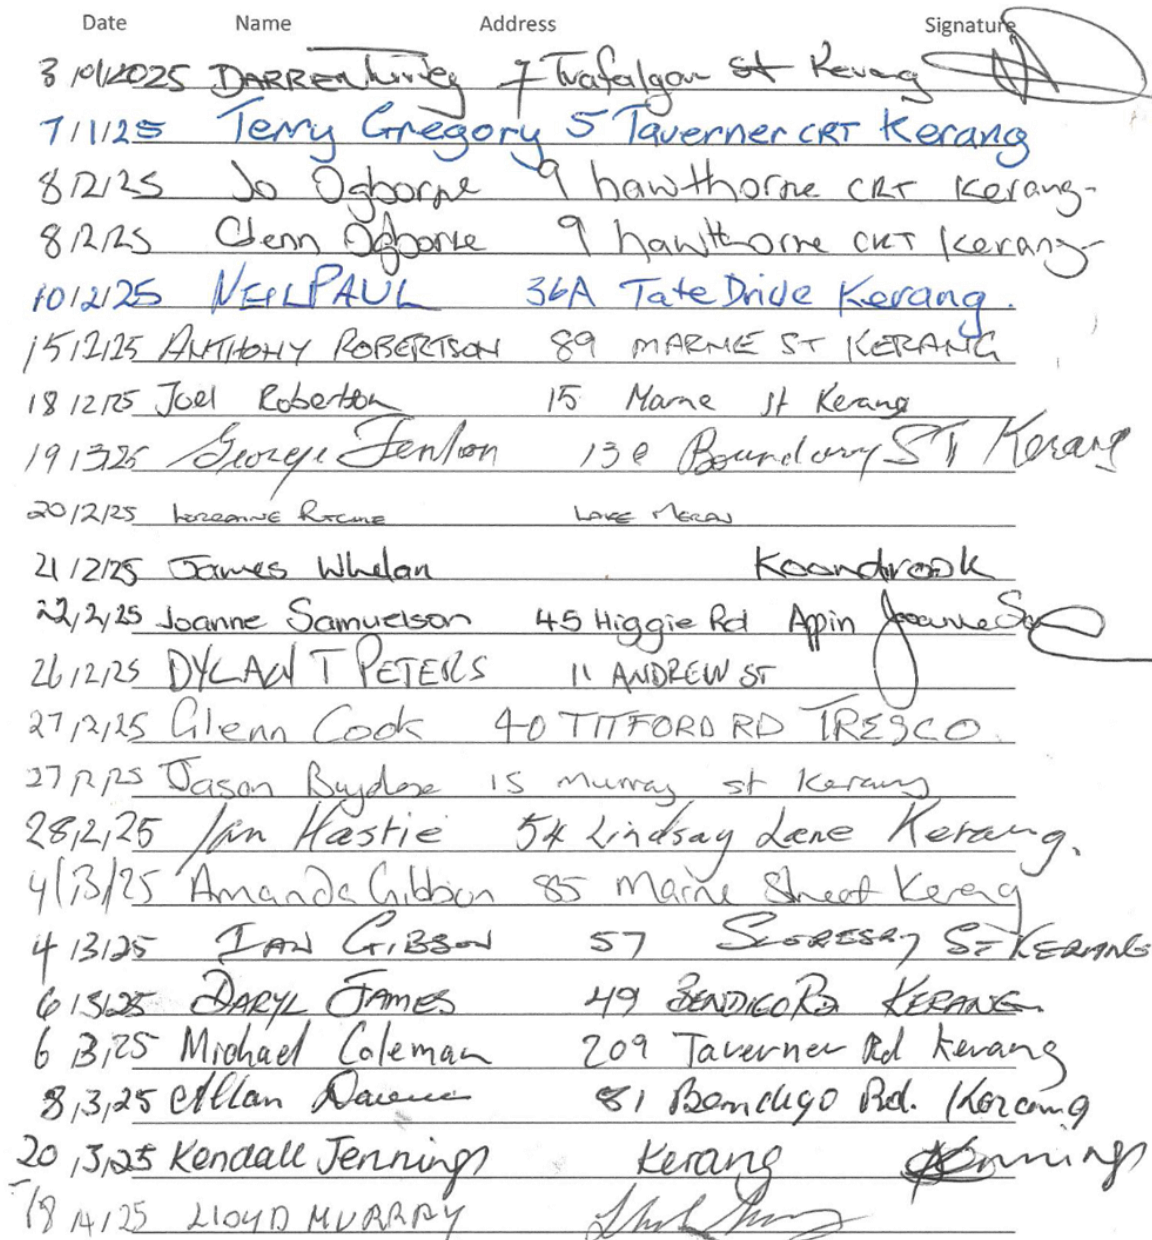 Date Name Address Signature
3/01/2025 DARREN 7 Trafalgar st Kerang
7/1/25 Terry Gregory 5 Taverner CRT Kerang
8/2/25 Jo Ogborne 9 hawthorne CRT Kerang-
8/2/25 Glenn Ogborne 9 hawthorne CRT Kerang-
10/2/25 NEIL PAUL 36A Tate Drive Kerang.
15/2/25 ANTHONY ROBERTSON 89 MARNE ST KERANG
18/2/25 Joel Robertson 15 Marne st Kerang
19/3/25 George Fenton 130 Boundary ST Kerang
20/2/25 LORRAINE RITCHIE LAKE MERAN
21/2/25 James Whelan Koondrook
22/2/25 Joanne Samuelson 45 Higgie Rd Appin
26/2/25 DYLAN T PETERS 11 ANDREW ST
27/2/25 Glenn Cook 40 TITFORD RD TRESCO.
27/2/25 Jason 15 murray st Kerang
28/2/25 Ian Hastie 54 Lindsay Lane Kerang.
4/3/25 Amanda Gibbon 85 Marne Street Kerang
4/3/25 IAN GIBSON 57 SCORESBY ST KERANG
6/3/25 DARYL JAMES 49 BENDIGO RD KERANG
6/3/25 Michael Coleman 209 Taverner Rd Kerang
8/3/25 Allan 81 Bendigo Rd. Kerang
20/3/25 Kendall Jennings Kerang Jennings
18/4/25 LLOYD MURRAY